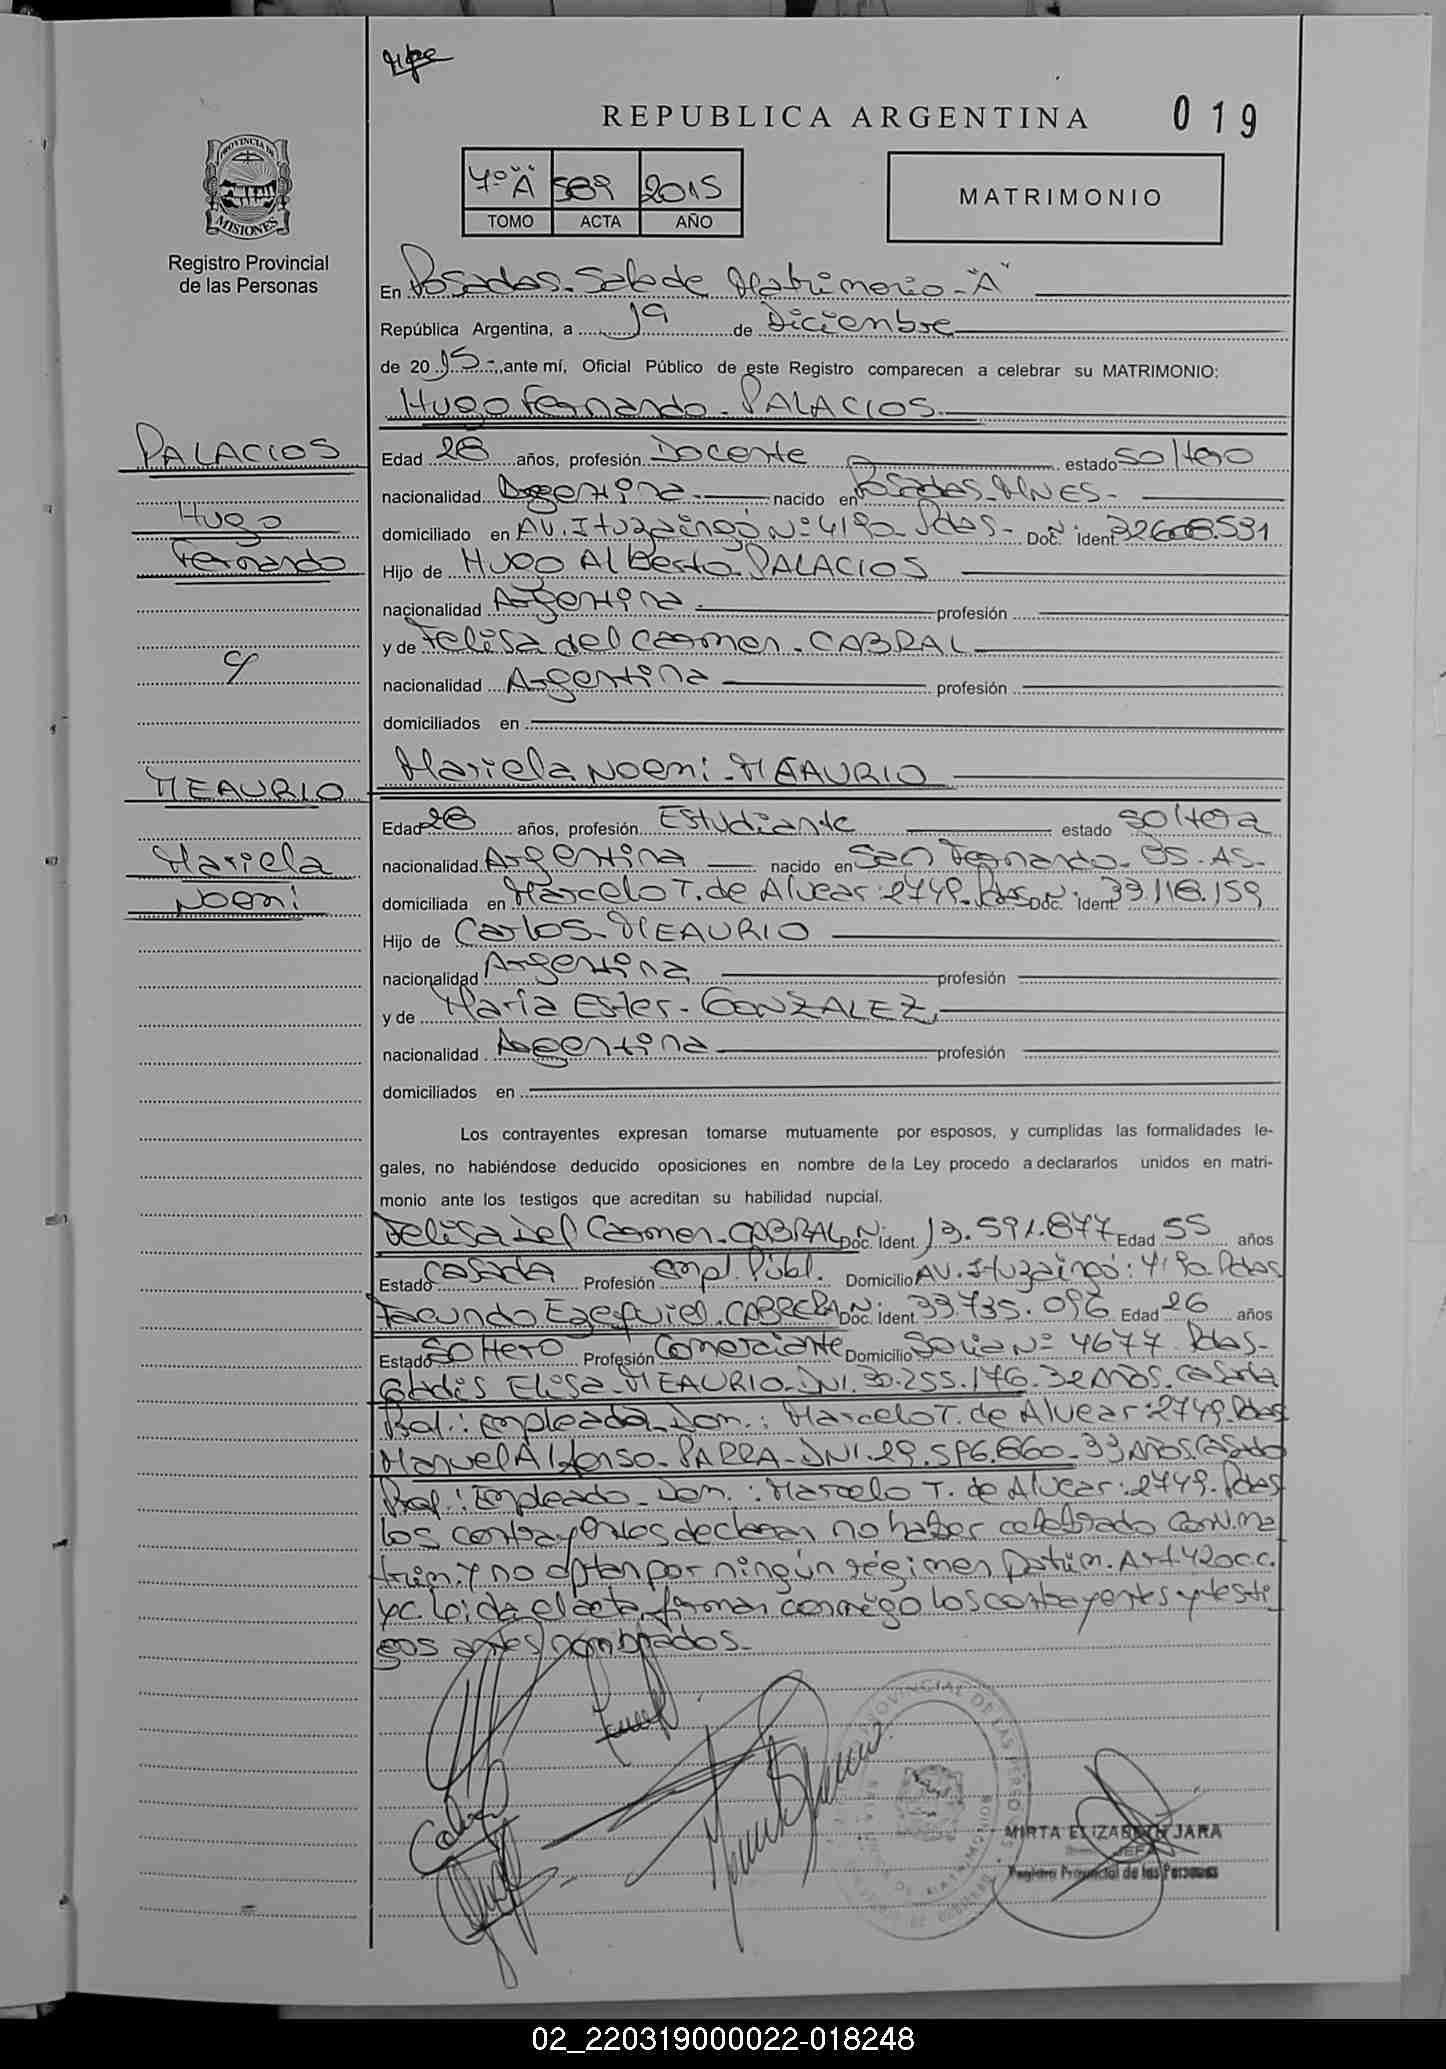 REPUBLICA ARGENTINA 019
PROVINCIA DE
MISIONES
Registro Provincial
de las Personas
4º "A" 589 2015
TOMO ACTA AÑO
MATRIMONIO
En Posadas-Sala de Matrimonio-"A"
República Argentina, a 19 de Diciembre
de 2015-, ante mí, Oficial Público de este Registro comparecen a celebrar su MATRIMONIO:
Hugo Fernando-PALACIOS
PALACIOS
Hugo
Fernando
Edad 28 años, profesión Docente estado soltero
nacionalidad Argentina nacido en Posadas-MNES-
domiciliado en AV. Ituzaingó Nº 4190 Pdas- Doc. Nº Ident. 32.608.531
Hijo de Hugo Alberto PALACIOS
nacionalidad Argentina profesión
y de Felisa del Carmen-CABRAL
nacionalidad Argentina profesión
domiciliados en
Mariela Noemi-MEAURIO
MEAURIO
Mariela
Noemi
Edad 28 años, profesión Estudiante estado soltera
nacionalidad Argentina nacido en San Fernando-BS-AS-
domiciliada en Marcelo T. de Alvear: 2749-Pdas Doc. Nº Ident. 33.118.159
Hijo de Carlos-MEAURIO
nacionalidad Argentina profesión
y de Maria Ester-GONZALEZ
nacionalidad Argentina profesión
domiciliados en
Los contrayentes expresan tomarse mutuamente por esposos, y cumplidas las formalidades le-
gales, no habiéndose deducido oposiciones en nombre de la Ley procedo a declararlos unidos en matri-
monio ante los testigos que acreditan su habilidad nupcial.
Felisa Del Carmen-CABRAL Doc. Nº Ident. 13.591.877 Edad 55 años
Estado casada Profesión empl. Públ. Domicilio AV. Ituzaingó: 4190-Pdas
Facundo Ezequiel-CABRERA Doc. Nº Ident. 33.735.096 Edad 26 años
Estado Soltero Profesión Comerciante Domicilio Nº 4677 Pdas-
Gladis Elisa-MEAURIO-DNI. 30.255.176-32 años-casada
Prof.: empleada-Dom.: Marcelo T. de Alvear: 2749-Pdas
Manuel Alfonso-PARRA-DNI. 29.596.860-33 Años. Casado
Prof.: Empleado-Dom.: Marcelo T. de Alvear: 2749-Pdas
los contrayentes declaran no haber celebrado conv. ma
trim. y no optan por ningún régimen patrim. Art 420 c.c.
yc. leida el acta, firman conmigo los contrayentes y testi
gos antes nombrados-
MIRTA ELIZABETH JARA
JEFA
Registro Provincial de las Personas
02_220319000022-018248